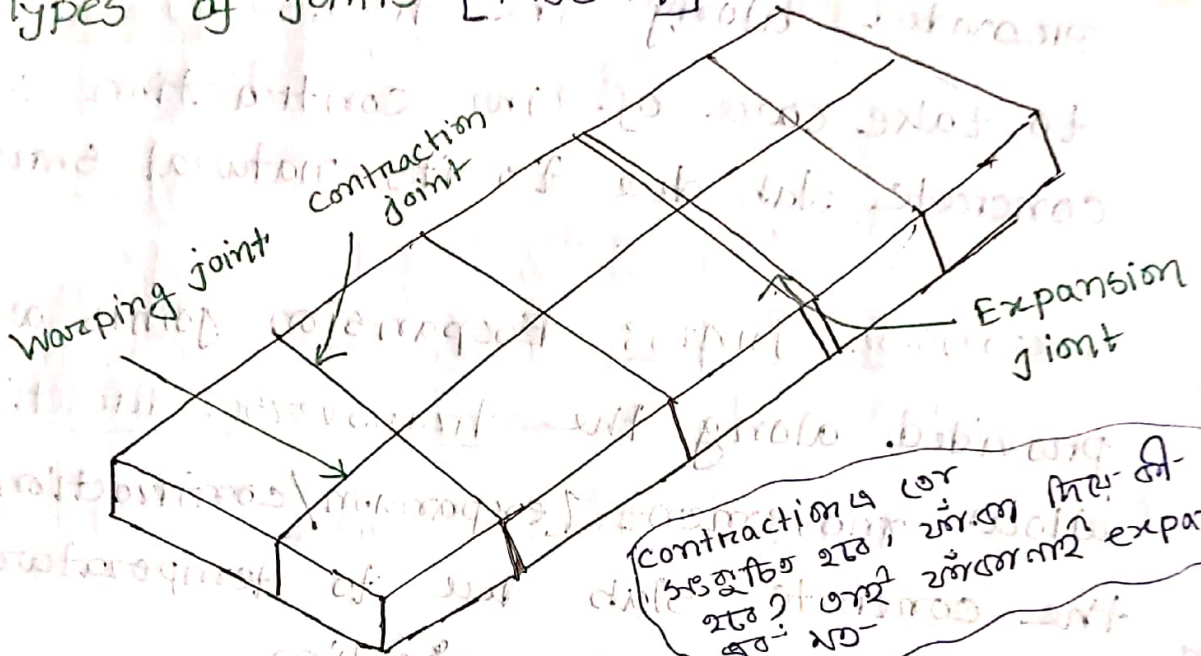 Types of
contraction
joint
Warping joint
Expansion
jiont
contraction এ তো
সংকুচিত হবে, ফাঁকা দিয়ে কী
হবে? তাই ফাঁকা নাই expa
এর মত